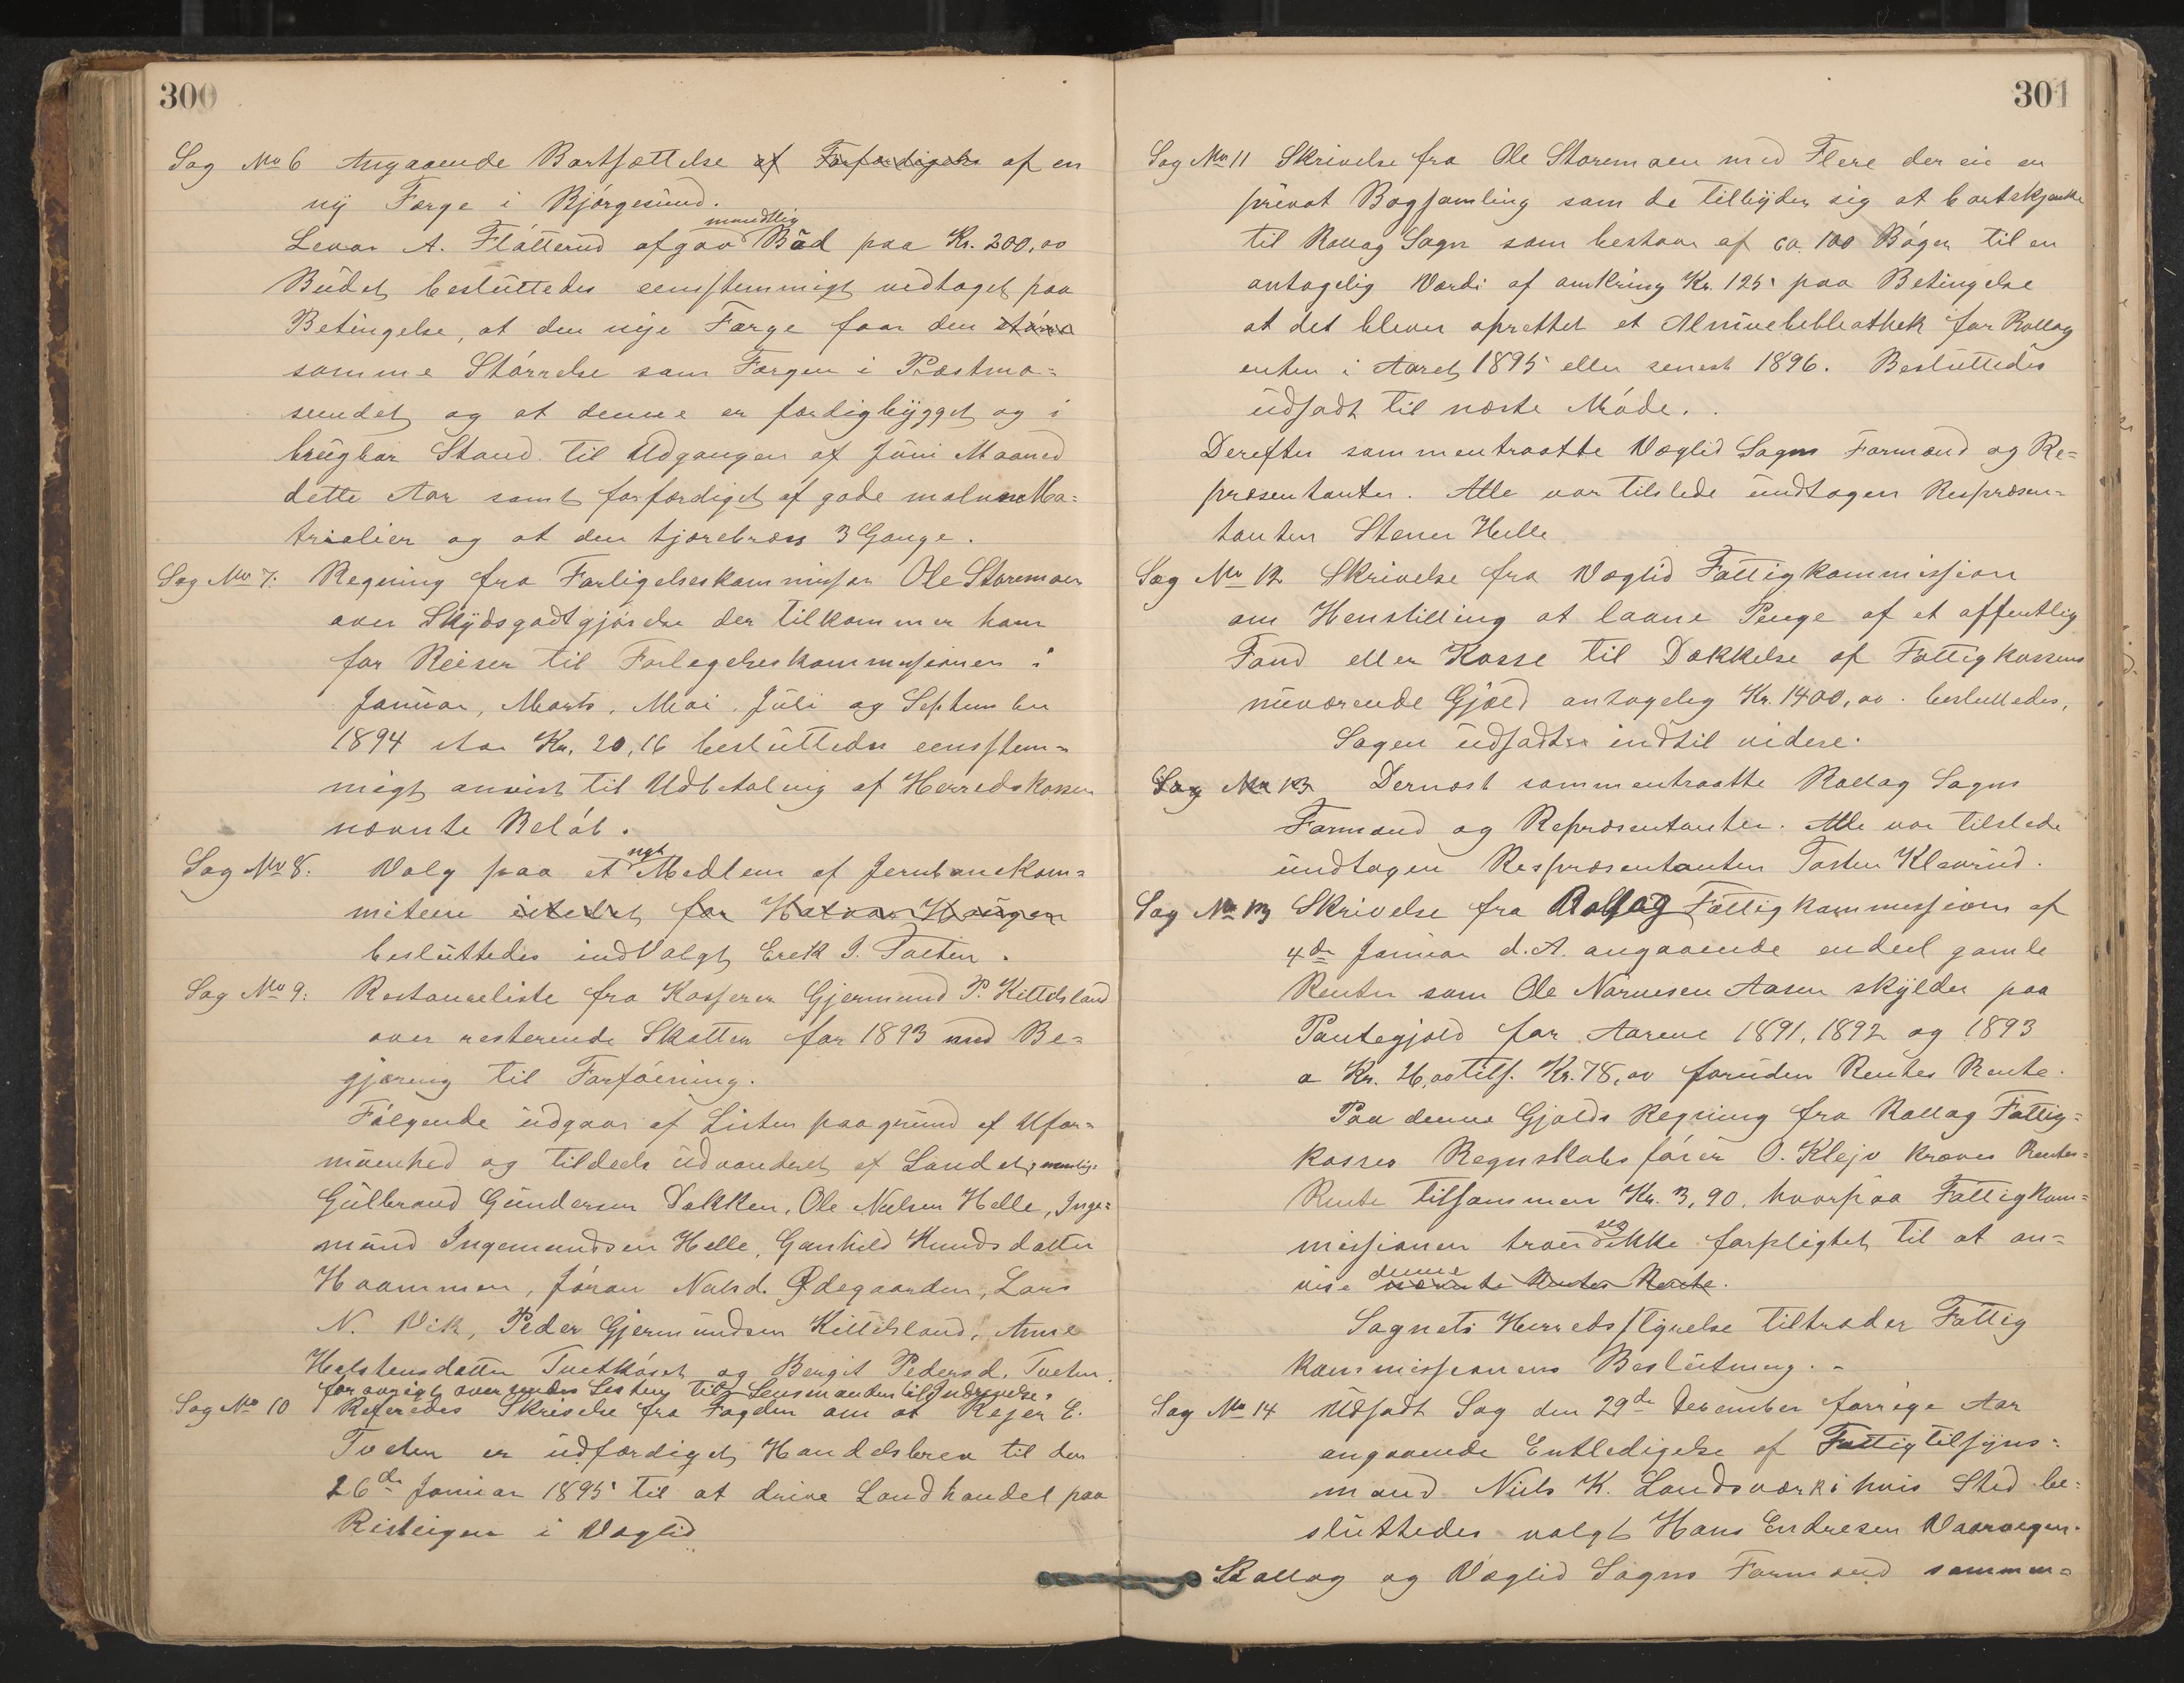 300
Sag No 6 Angaaende Bortsættelse af Forfærdigelse af en
ny Færge i Bjørgesund.
mundtlig
Levor A. Flåtterud afgav Bud paa Kr. 200,00
Budet besluttedes eenstemmigt vedtaget paa
Betingelse, at den nye Færge faar den større
samme Størrelse som Færgen i Præstmo-
sundet og at denne er færdigbygget og i
brugbar Stand til Udgangen af Juni Maaned
dette Aar samt forfærdiget af gode malmMa-
trialier og at den tjærebræes 3 Gange.
Sag No 7. Regning fra Forligelseskommissær Ole Storemoen
over Skydsgodtgjørelse der tilkommer ham
for Reiser til Forlegelseskommisionen i
Januar, Marts, Mai, Juli og September
1894 stor Kr. 20,16 besluttedes eenstem-
migt anvist til Udbetaling af Herredskassen
nævnte Beløb.
nyt
Sag No 8. Valg paa et Medlem af Jernbanekom-
miteen istedet for Halvor Haugen
besluttedes indvalgt Erek I. Tveten.
Sag No 9. Restanseliste fra Kasserer Gjermund P. Kittilsland
over resterende Skatter for 1893 med Be-
gjæring til Forføining.
Følgende udgaar af Listen paagrund af Ufor-
muenhed og tildeels udvandret af Landet, nemlig:
Gulbrand Gundersen Dokken, Ole Nielsen Helle, Inge-
mund Ingemundsen Helle, Gunhild Knudsdatter
Haammen, Jøran Nielsd. Ødegaarden, Lars
N. Vik, Peder Gjermundsen Kittilsland, Anne
Halstensdatter Tvetkåset og Bergit Pedersd. Tveten.
forøvrigt oversendes Listen til Lensmanden til Inddrivelse.
Sag No 10 Refereredes Skrivelse fra Fogden om at Rejer E.
Tveten er udfærdiget Handelsbrev til den
26de Januar 1895 til at drive Landhandel paa
Risteigen i Væglid
301
Sag No 11 Skrivelse fra Ole Storemoen med Flere der eie en
privat Bogsamling som de tilbyder sig at bortskjænke
til Rollag Sogn som bestaar af ca. 100 Bøger til en
antagelig Værdi af omkring Kr. 125 paa Betingelse
at det bliver oprettet et Almuebibliothek for Rollag
enten i Aaret 1895 eller senest 1896. Besluttedes
udsadt til næste Møde.
Derefter sammentraatte Væglid Sogns Formænd og Re-
præsentanter. Alle var tilstede undtagen Respræsen-
tanten Stener Helle
Sag No 12 Skrivelse fra Væglid Fattigkommission
om Henstilling at laane Penge af et offentlig
Fond eller Kasse til Dækkelse af Fattigkassens
nuværende Gjæld antagelig Kr. 1400,00. besluttedes,
Sagen udsadtes indtil videre.
Sag No 13 Dernæst sammentraatte Rollag Sogns
Formænd og Repræsentanter. Alle var tilstede
undtagen Respræsentanten Tosten Kleivrud.
Sag No 13 Skrivelse fra Rollag Fattigkommission af
4de Januar d.A. angaaende endeel gamle
Renter som Ole Narvesen Aasen skylder paa
Pantegjæld for Aarene 1891, 1892 og 1893
a Kr. 26,00 tils. Kr. 78,00 foruden Rentes Rente.
Paa denne Gjælds Regning fra Rollag Fattig-
kasses Regnskabsfører O. Klejv kræves Rentes-
Rente tilsammen Kr. 3,90, hvorpaa Fattigkom-
seg
missionen troer ikke forpligtet til at an-
denne
vise nævnte Rentes Rente.
Sognets Herredsstyrelse tiltræder Fattig
kommissionens Beslutning. -
Sag No 14 Udsadt Sag den 29de December forrige Aar
angaaende Entledigelse af Fattigtilsyns-
mand Niels K. Landsværk i hvis Sted be-
sluttedes valgt Hans Endresen Vaarvegen.
Rollag og Væglid Sogns Formænd sammen-